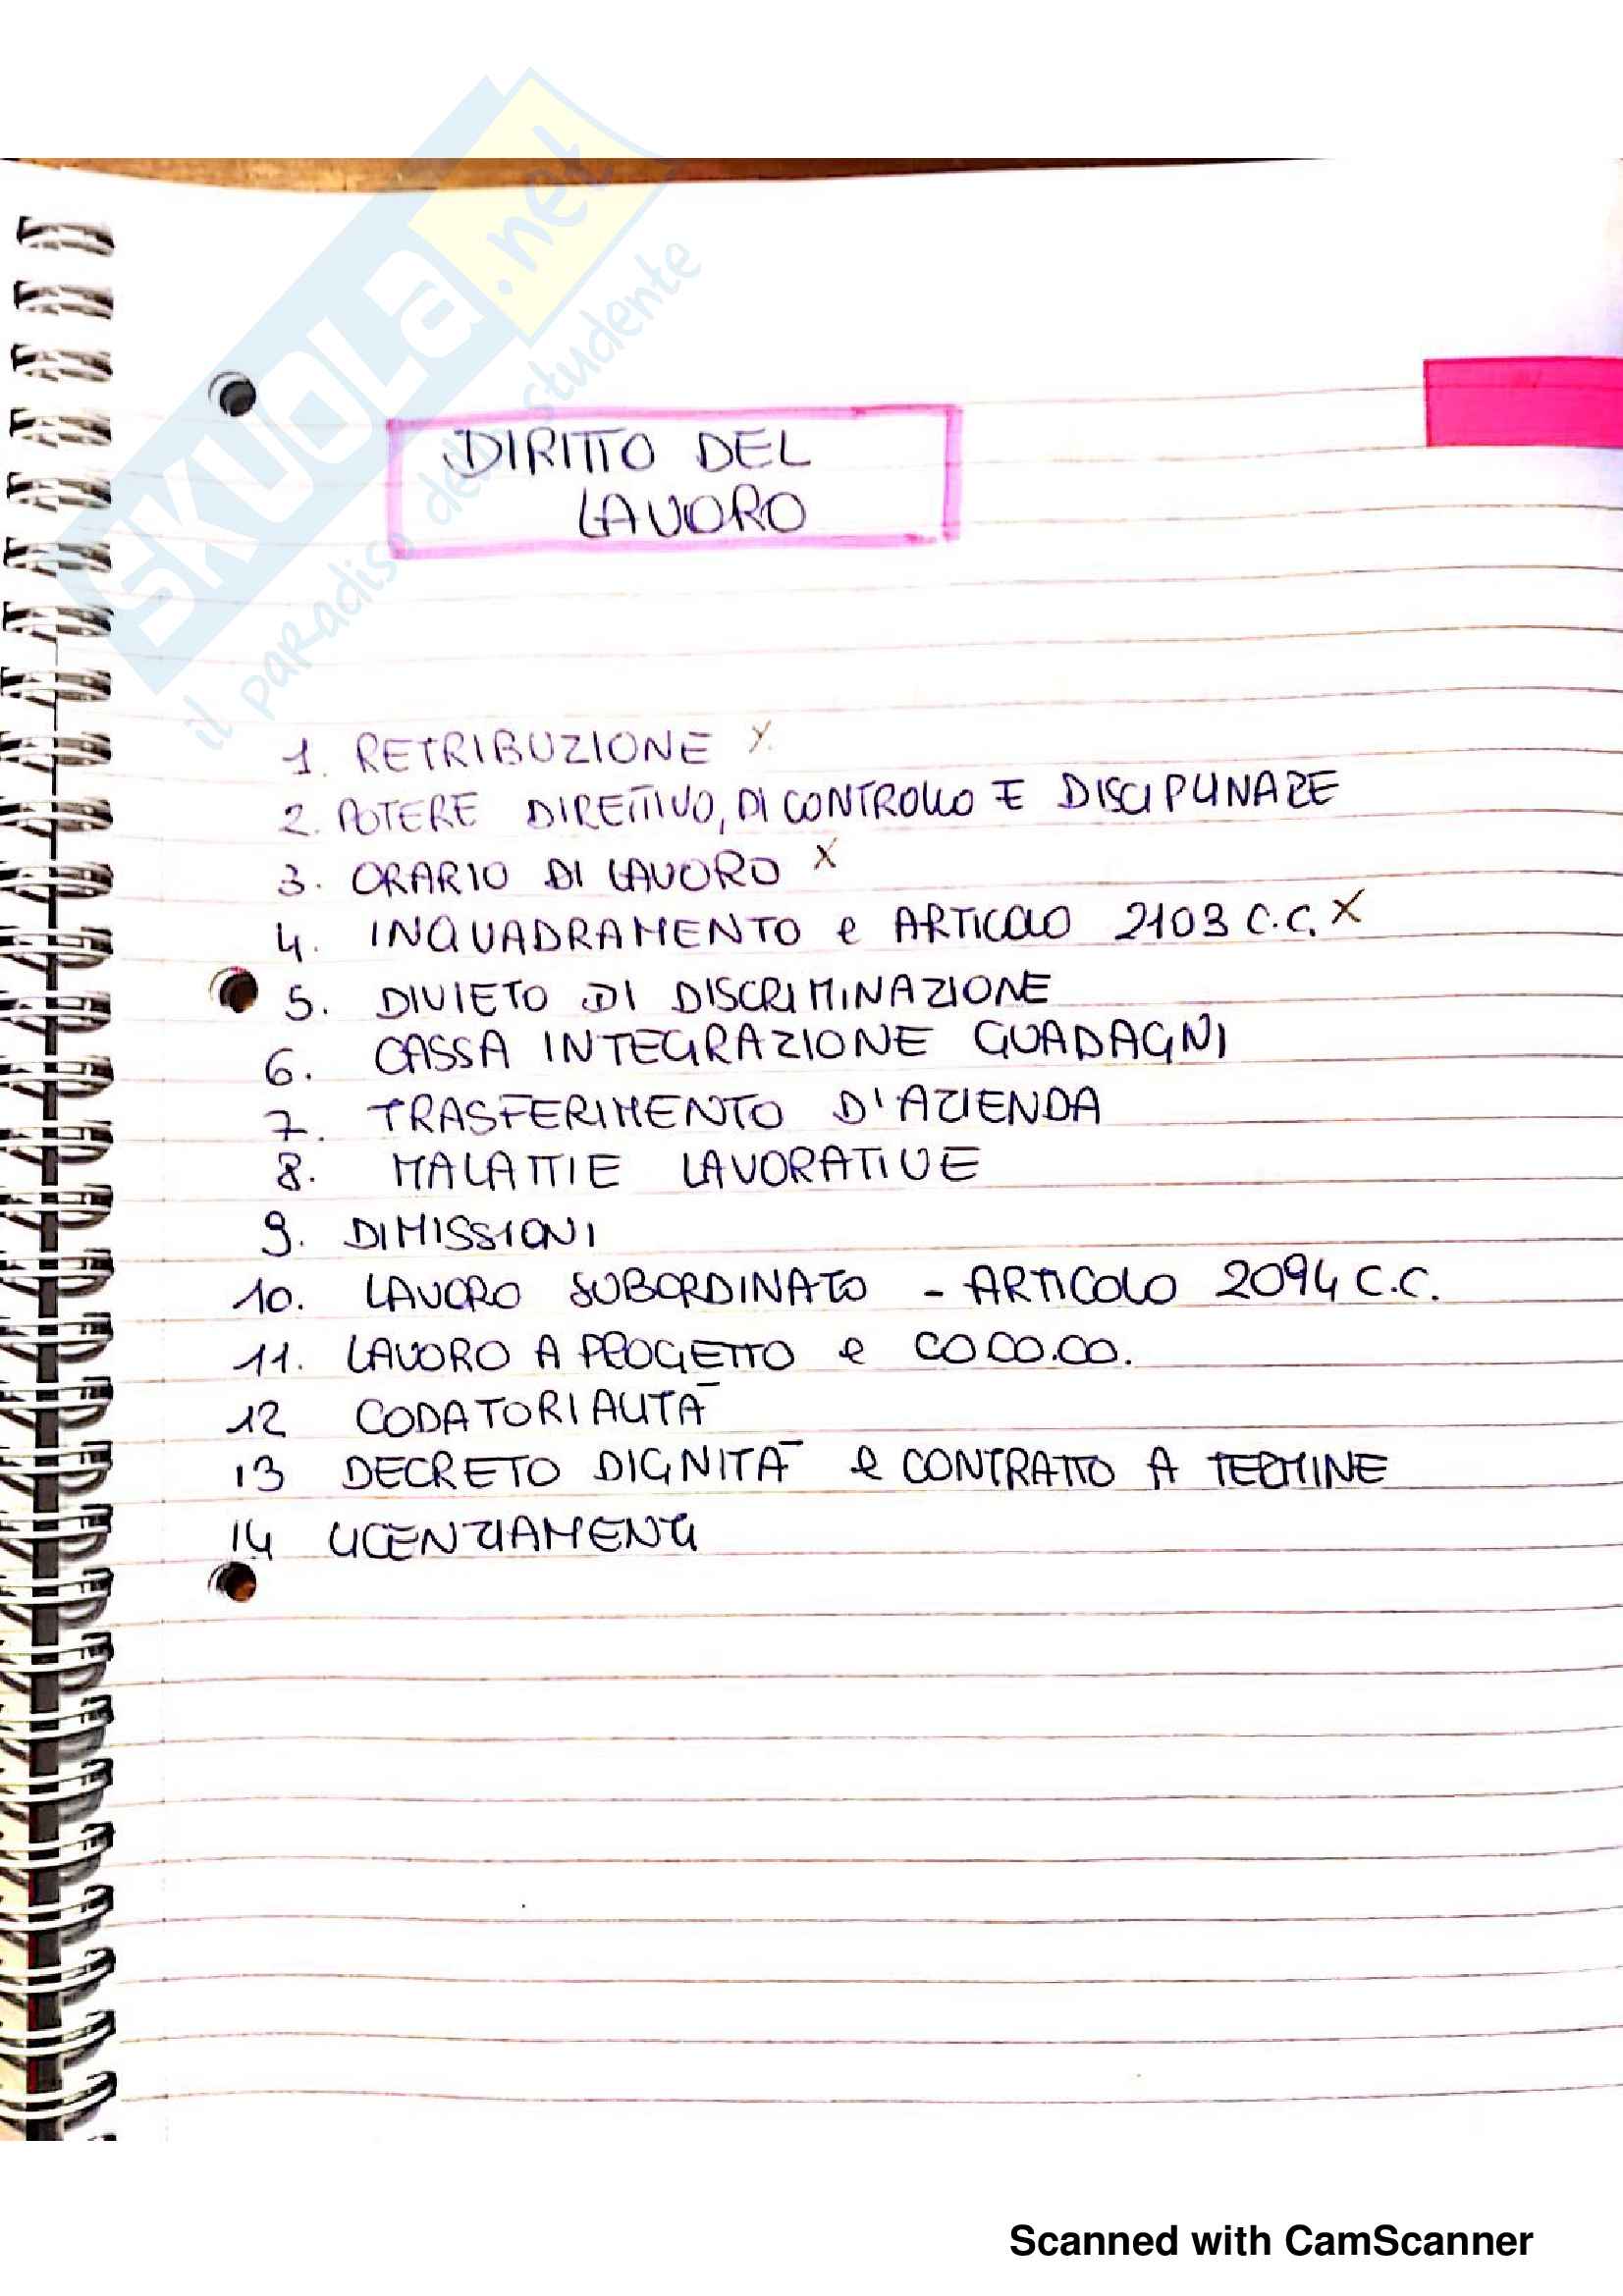 SKUOLA.net
il paradiso dello studente
DIRITTO DEL
LAVORO
1. RETRIBUZIONE X
2. POTERE DIRETTIVO, DI CONTROLLO E DISCIPLINARE
3. ORARIO DI LAVORO X
4. INQUADRAMENTO e ARTICOLO 2103 C.C. X
5. DIVIETO DI DISCRIMINAZIONE
6. CASSA INTEGRAZIONE GUADAGNI
7. TRASFERIMENTO D'AZIENDA
8. MALATTIE LAVORATIVE
9. DIMISSIONI
10. LAVORO SUBORDINATO - ARTICOLO 2094 C.C.
11. LAVORO A PROGETTO e CO.CO.CO.
12 CODATORIALITÀ
13 DECRETO DIGNITÀ e CONTRATTO A TERMINE
14 LICENZIAMENTI
Scanned with CamScanner